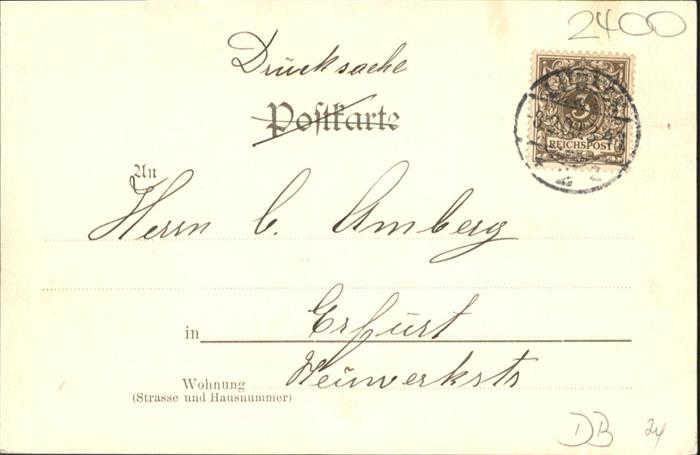 2400
Drucksache
Postkarte
3
REICHSPOST
An
Herrn C. Amberg
in Erfurt
Wohnung Neuwerkstr
(Strasse und Hausnummer)
DB 24